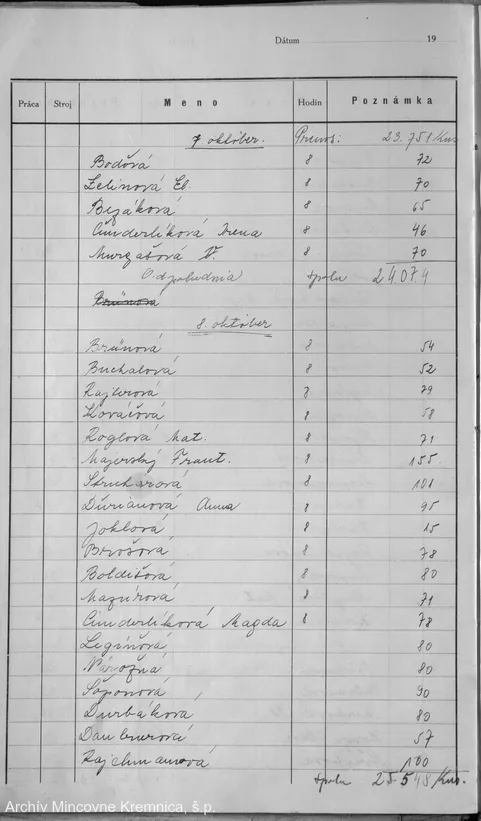 Dátum 19
Práca Stroj Meno Hodín Poznámka
7. október. Prenos: 23.751 Kus
Bodová 8 72
Zelinová El. 8 70
Bezáková 8 65
Cinderlíková Irena 8 46
Murgašová V. 8 70
Odpoludnia Spolu 24074
8. október
Brünová 8 54
Buchalová 8 52
Rajterová 8 79
Kováčová 8 58
Roglová Mat. 8 71
Majerský Frant. 8 155.
Struhárová 8 101
Durianová Anna 8 95
Joklová 8 15
Brošová 8 78
Boldišová 8 80
Mazúrová 8 71
Cinderlíková Magda 8 78
Legínová 80
80
Šoponová 90
Durbáková 80
57
Rajchmanová 100
Spolu 25.548 Kus.
Archív Mincovne Kremnica, š.p.